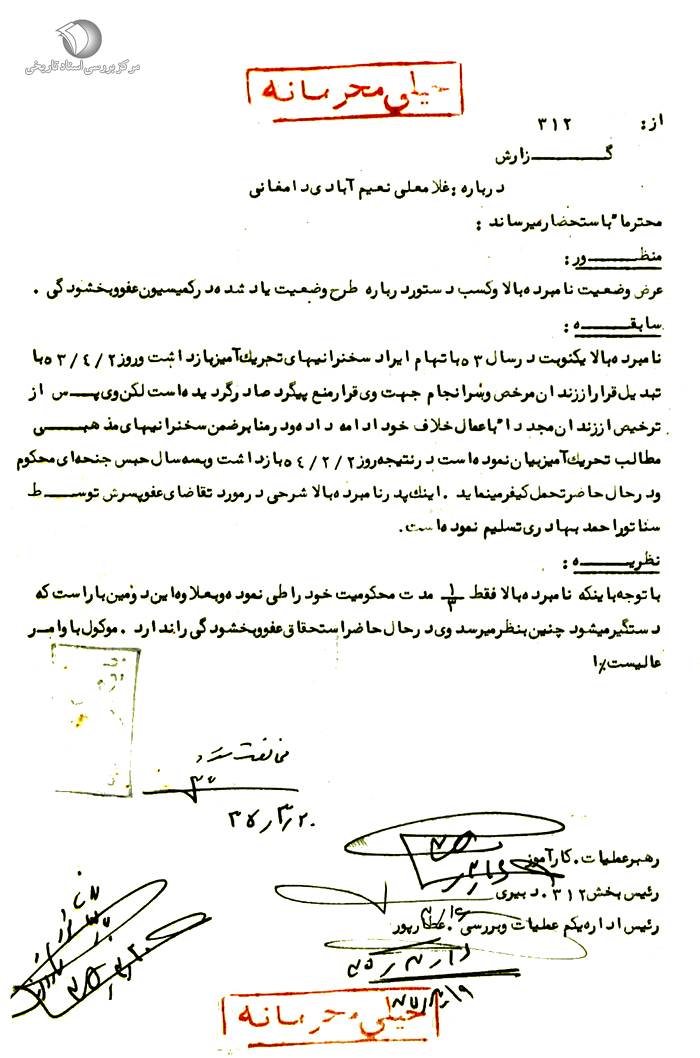 مرکز بررسی اسناد تاریخی
خیلی محرمانه
از: ۳۱۲
گزارش
درباره : غلامعلی نعیم آبادی دامغانی
محترما" باستحضار میرساند :
منظور :
عرض وضعیت نامبرده بالا و کسب دستور درباره طرح وضعیت یاد شده در کمیسیون عفو و بخشودگی .
سابقه :
نامبرده بالا یکنوبت در سال ۵۳ باتهام ایراد سخنرانیهای تحریک آمیز بازداشت و روز ۵۳/۴/۲ با
تبدیل قرار از زندان مرخص و سرانجام جهت وی قرار منع پیگرد صادر گردیده است لکن وی پس از
ترخیص از زندان مجددا" باعمال خلاف خود ادامه داده و در منابر ضمن سخنرانیهای مذهبی
مطالب تحریک آمیز بیان نموده است در نتیجه روز ۵۴/۲/۲ بازداشت و بسه سال حبس جنحه ای محکوم
و در حال حاضر تحمل کیفر مینماید . اینک پدر نامبرده بالا شرحی در مورد تقاضای عفو پسرش توسط
سناتور احمد بهادری تسلیم نموده است .
نظریه :
با توجه باینکه نامبرده بالا فقط ۱/۳ مدت محکومیت خود را طی نموده و بعلاوه این دومین بار است که
دستگیر میشود چنین بنظر میرسد وی در حال حاضر استحقاق عفو و بخشودگی را ندارد . موکول باوامر
عالیست./ا
مخالفت شد
۳۵/۳/۲۰
رهبر عملیات . کارآموز
رئیس بخش ۳۱۲ . دبیری
رئیس اداره یکم عملیات و بررسی . عطارپور
خیلی محرمانه